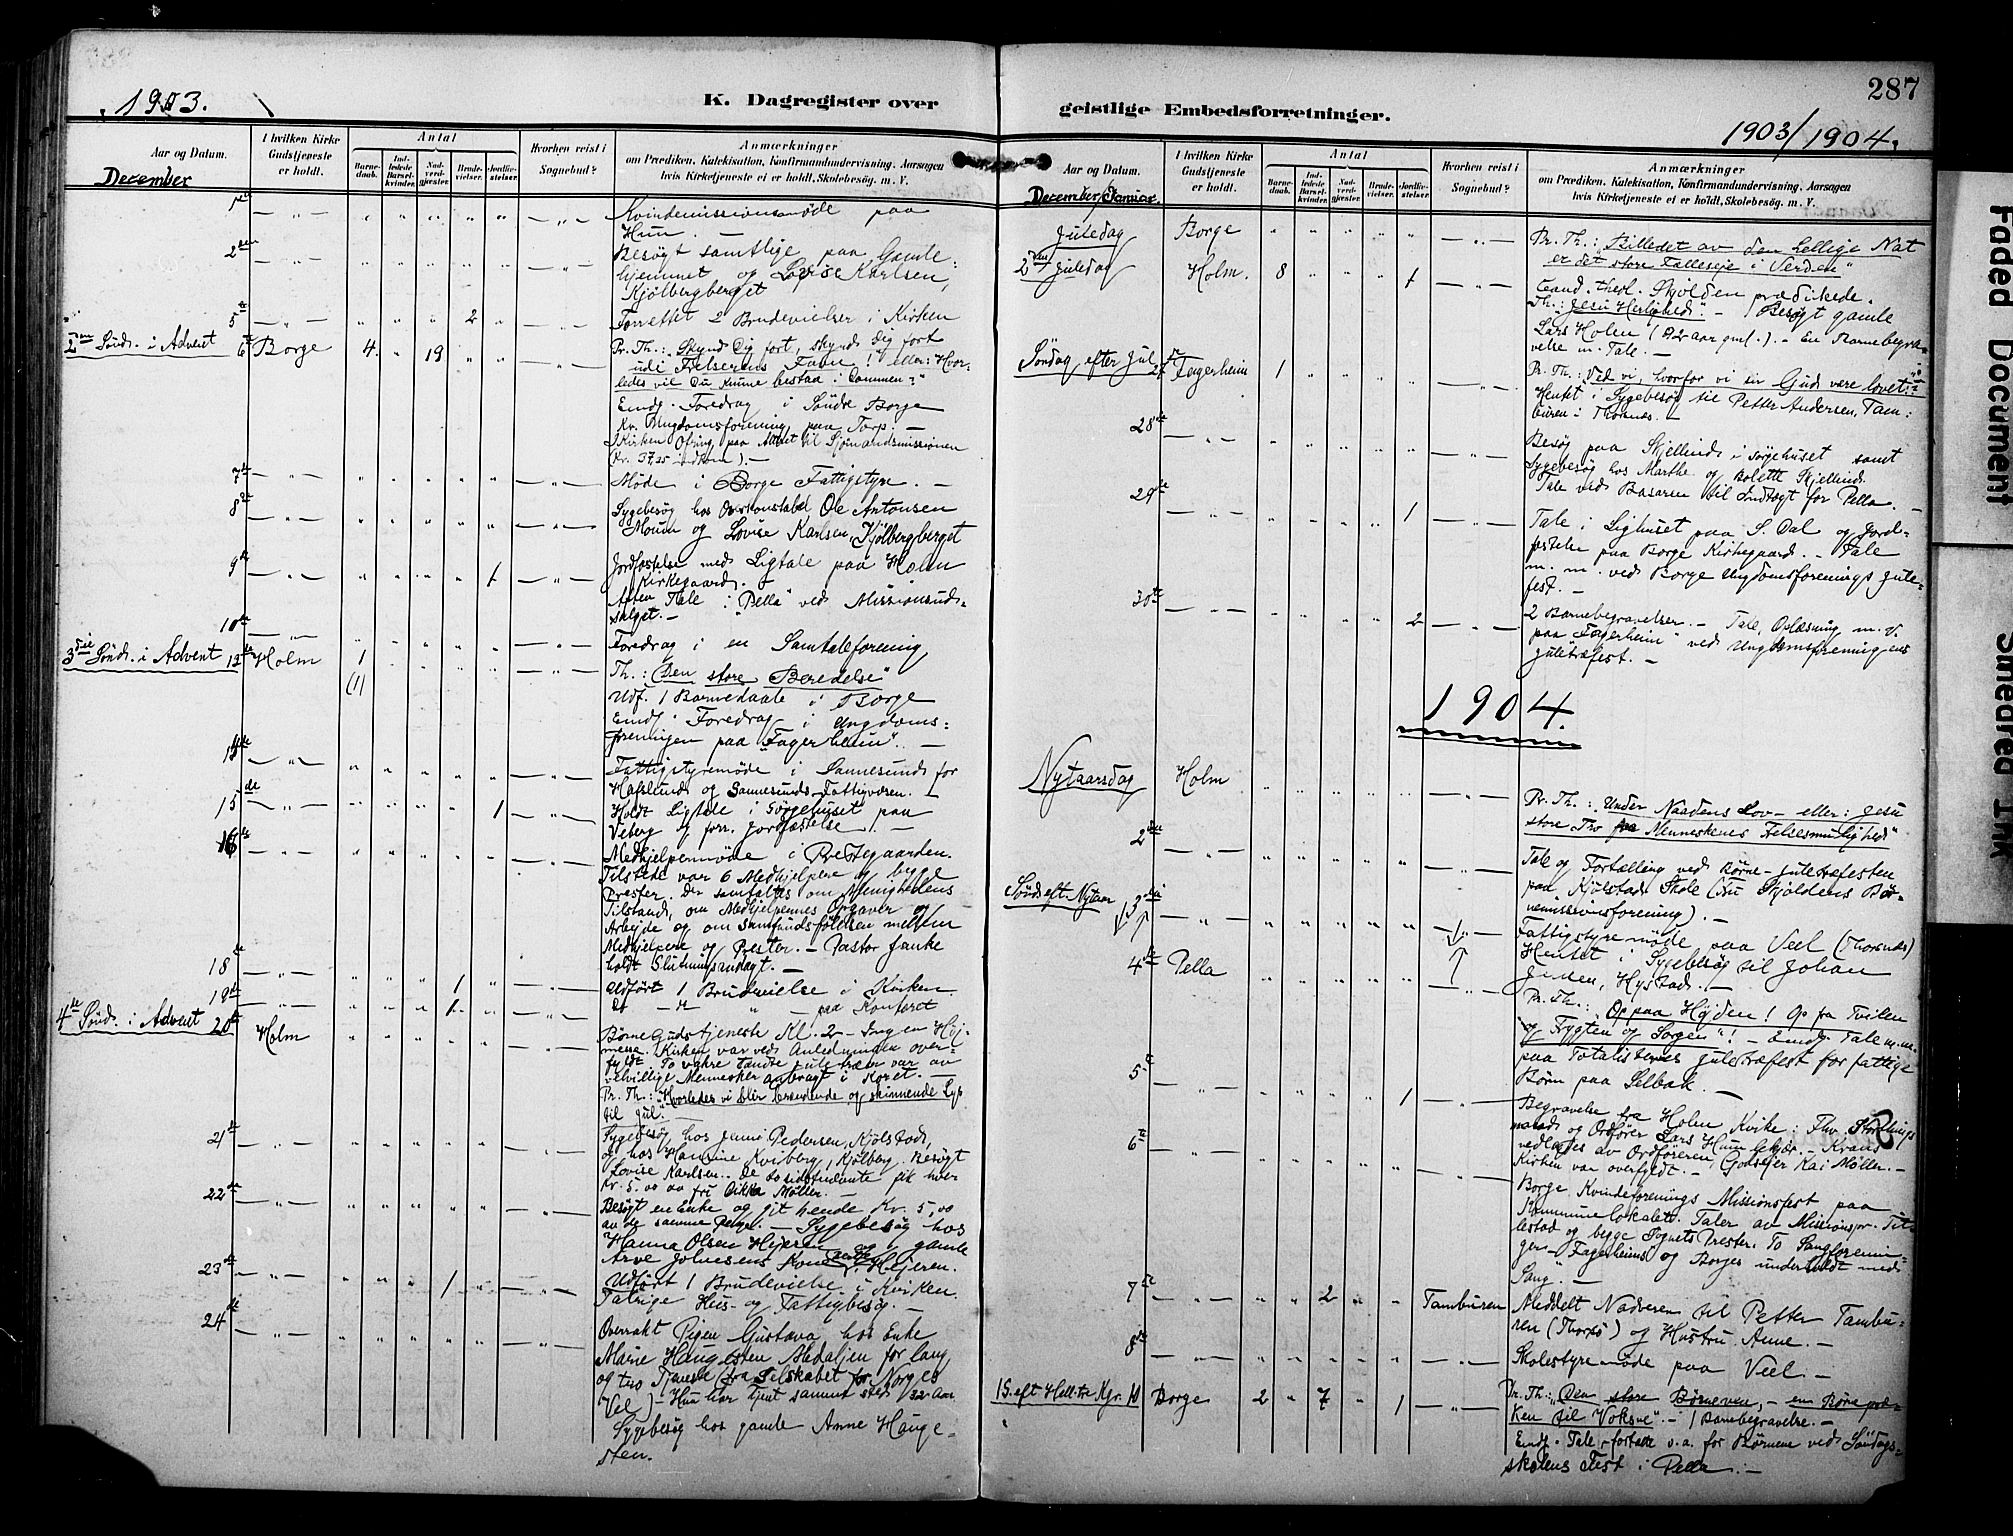 287
1903.
K. Dagregister over
geistlige Embedsforretninger.
1903/1904.
Aar og Datum.
I hvilken Kirke Gudstjeneste er holdt.
Antal
Barnedaab.
Indledede Barselkvinder.
Nadverdgjester.
Brudevielser.
Jordfæstelser.
Hvorhen reist i Sognebud?
Anmærkninger
om Prædiken, Katekisation, Konfirmandundervisning, Aarsagen
hvis Kirketjeneste ei er holdt, Skolebesøg. m. V.
December
Kvindemissionsmøde paa
Hun. —
2den
Besøgt samtlige paa Gamle-
hjemmet og Lovise Karlsen,
Kjølbergberget
5te 2 Forrettet 2 Brudevielser i Kirken
2den Sønd. i Advent 6te Borge 4. 19 Pr. Th.: Skynd Dig fort, skynd dig fort
udi Frelserens Favn! eller: Hvor-
ledes vil Du kunne bestaa i Dommen?"
Emdg. Foredrag i Søndre Borge
Kv. Ungdomsforening paa Torp. —
I Kirken Ofring paa Alteret til Sjømandsmissionen
(Kr. 37,25 indkom). —
7de Møde i Borge Fattigstyre. —
8de Sygebesøg hos Overkonstabel Ole Antonsen
Moum og Lovise Karlsen, Kjølbergberget
9de 1 Jordfæstelse med Ligtale paa Holm
Kirkegaard. —
Aften Tale i "Pella" ved Missionsud-
salget. —
10de Foredrag i en Samtaleforening
3die Sønd. i Advent Holm 1 Th.: "Den store Beredelse"
(1) Udf. 1 Barnedaab i Borge
Emdg. Foredrag i Ungdoms-
foreningen paa "Fagerheim". —
Fattigstyremøde i Sannesund for
Hafslund og Sannesunds Fattigvæsen. —
15de 1 Holdt Ligtale i Sørgehuset paa
Veberg og forr. Jordfæstelse. —
16de Medhjelpermøde i Prestegaarden.
Tilstede var 6 Medhjelpere og begge
Prester. Der samtaltes om Menighedens
Tilstand, om Medhjelpernes Opgaver og
Arbejde og om Samfundsfølelsen mellem
Medhjelpere og Prester. — Pastor Janke
holdt Slutningsandagt. —
18de 1 Udført 1 Brudevielse i Kirken
19de 1 paa Kontoret
4de Sønd. i Advent 20de Holm Børne Gudstjeneste Kl. 2 — Ingen Høj-
messe. Kirken var ved Anledningen over-
fyldt. To vakre tændte juletræer var av
velvillige Mennesker anbragt i Koret. —
Pr. Th.: "Hvorledes vi blir brændende og skinnende Lys
til Jul." —
21de Sygebesøg hos Jenni Pedersen, Kjølstad,
og hos Hansine Kviberg, Kjølberg. Besøgt
Lovise Karlsen. De to sidstnævnte fik hver
Kr. 5.00 av Møller. —
22de Besøgt en Enke og git hende Kr. 5,00
av de samme Penge. — Sygebesøg hos
Hanna Olsen Hjeren og gamle
Hejeren.
23de 1 Udført 1 Brudevielse i Kirken.
Talrige Hus- og Fattigbesøg. —
24de Overrakt Pigen Gustava hos Enke
Marie Haugesten Medaljen for lang
og tro Tjeneste (fra Selskabet for Norges
Vel) — Hun har tjent samme sted 32 Aar
Sygebesøg hos gamle Anne Hauge-
sten.
Aar og Datum.
I hvilken Kirke Gudstjeneste er holdt.
Antal
Barnedaab.
Indledede Barselkvinder.
Nadverdgjester.
Brudevielser.
Jordfæstelser.
Hvorhen reist i Sognebud?
Anmærkninger
om Prædiken, Katekisation, Konfirmandundervisning, Aarsagen
hvis Kirketjeneste ei er holdt, Skolebesøg. m. V.
December/Januar.
Juledag Borge Pr. Th.: Billedet av den hellige Nat
er det store Fælleseje i Verden"
2den Juledag Holm. 8 1 Cand. theol. Skolden prædikede.
Th.: "Jesu Herlighed". — Besøgt gamle
Lars Holen (92 aar gml.). — En Barnebegra-
velse m. Tale. —
Søndag efter Jul 27de Fagerheim 1 Pr. Th.: "Ved vi, hvorfor vi sir Gud være lovet!"
Hentet i Sygebesøg til Petter Andersen, Tam-
buren i Thorsnæs. —
28de Besøg paa Skjellin i Sørgehuset samt
Sygebesøg hos Marthe og Bolette Skjellin.
Tale ved Basaren til Indtægt for Pella. —
29de 1 Tale i Lighuset paa S. Dal og Jord-
fæstelse paa Borge Kirkegaard. — Tale
m. m. ved Borge Ungdomsforenings Jule-
fest. —
30te 2 2 Barnebegravelser. — Tale, Oplæsning m. V.
paa "Fagerheim" ved Ungdomsforeningens
juletræfest. —
1904.
Nytaarsdag Holm Pr. Th.: Under Naadens Lov — eller: Jesu
store Tro paa Menneskenes Frelsesmulighed"
2den Tale og Fortælling ved Børne-juletræfesten
paa Kjølstad Skole (Fru Skjoldens Bør-
nemissionsforening). —
Sønd. eft. Nytaar 3die Fattigstyremøde paa Veel (Thorsnæs)
Hentet i Sygebesøg til Johan
Jensen, Hystad. —
4de Pella Pr. Th.: Op paa Højden! Op fra Tvilen
og Frygten og Sorgen"! — Emdg. Tale m.m.
paa Totalisternes juletræfest for fattige
Børn paa Selbak. —
5te 1 Begravelse fra Holm Kirke: Fhv. Stortings
mand og Ordfører Lars Hun — Krans
vedlagdes av Ordføreren, Godsejer Kai Møller. —
Kirken var overfyldt. —
6te Borge Kvindeforenings Missionsfest paa
Kommunelokalet. Taler av Missionspr. Tit-
lestad og begge Sognets Prester. To Sangforenin-
ger — Fagerheims og Borges underholdt med
Sang. —
7de 2 Tamburen Meddelt Nadveren til Petter Tambu-
ren (Thorsø) og Hustru Anne. —
8de Skolestyremøde paa Veel. —
1 S. eft. Hell. tre Kgr. 10 Borge 2 7 1 Pr. Th.: "Den store Børneven, — en Børnepræ-
ken til Voksne". — 1 Barnebegravelse. —
Emdg. Tale, fortalte o.a. for Børnene ved Søndags-
skolens Fest i Pella. —
Faded Document
Smeared Ink